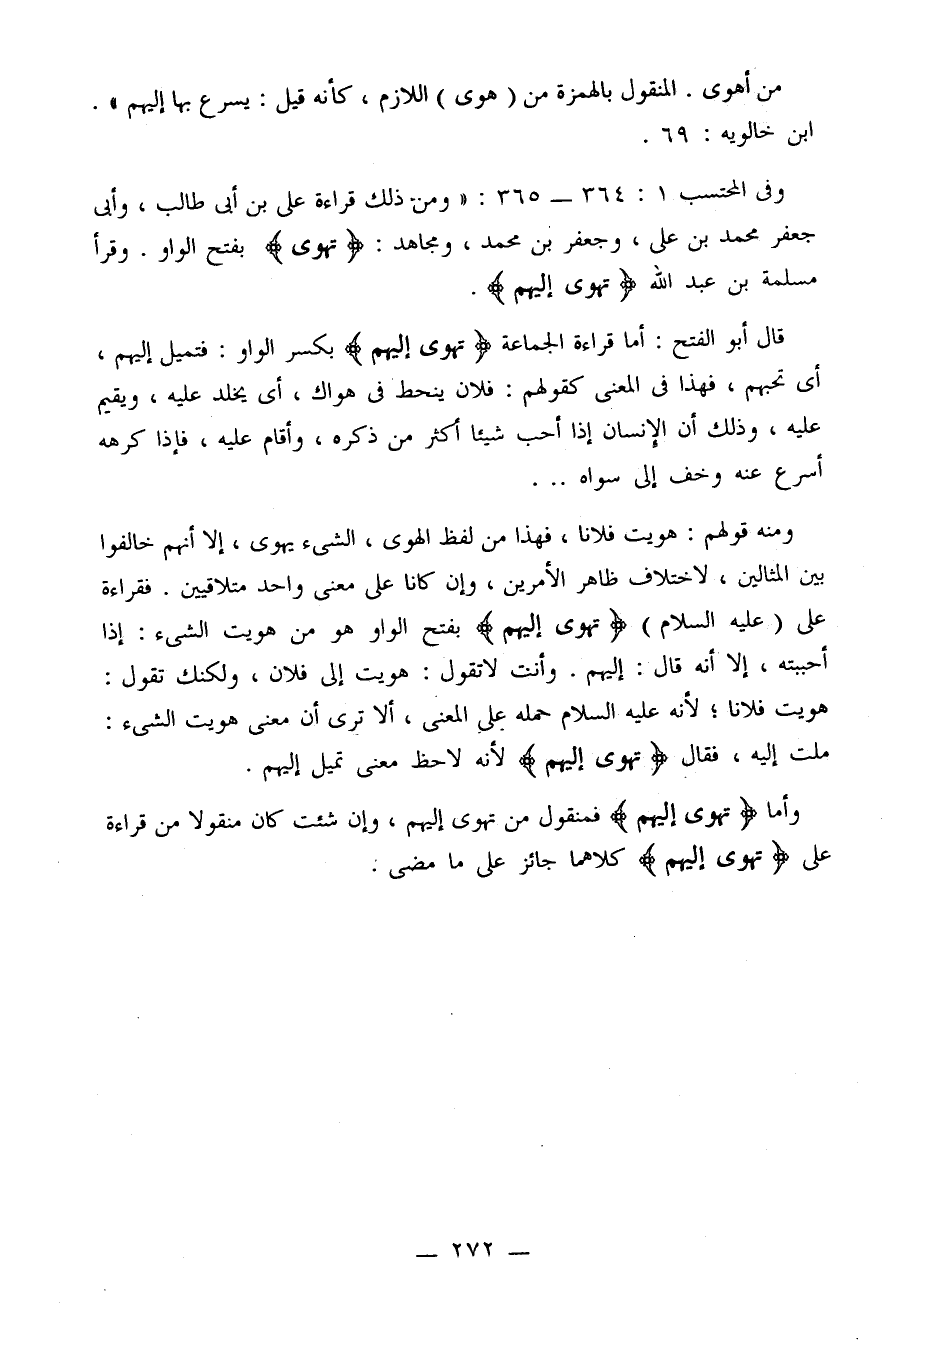 من أهوى . المنقول بالهمزة من ( هوى ) اللازم ، كأنه قيل : يسرع بها إليهم » .
ابن خالويه : ٦٩ .
وفى المحتسب ١ : ٣٦٤ — ٣٦٥ : « ومن ذلك قراءة على بن أبى طالب ، وأبى
جعفر محمد بن على ، وجعفر بن محمد ، ومجاهد : ﴿ تهوى ﴾ بفتح الواو . وقرأ
مسلمة بن عبد الله ﴿ تهوى إليهم ﴾ .
قال أبو الفتح : أما قراءة الجماعة ﴿ تهوى إليهم ﴾ بكسر الواو : فتميل إليهم ،
أى تحبهم ، فهذا فى المعنى كقولهم : فلان ينحط فى هواك ، أى يخلد عليه ، ويقيم
عليه ، وذلك أن الإنسان إذا أحب شيئا أكثر من ذكره ، وأقام عليه ، فإذا كرهه
أسرع عنه وخف إلى سواه .. .
ومنه قولهم : هويت فلانا ، فهذا من لفظ الهوى ، الشىء يهوى ، إلا أنهم خالفوا
بين المثالين ، لاختلاف ظاهر الأمرين ، وإن كانا على معنى واحد متلاقيين . فقراءة
على ( عليه السلام ) ﴿ تهوى إليهم ﴾ بفتح الواو هو من هويت الشىء : إذا
أحببته ، إلا أنه قال : إليهم . وأنت لاتقول : هويت إلى فلان ، ولكنك تقول :
هويت فلانا ؛ لأنه عليه السلام حمله على المعنى ، ألا ترى أن معنى هويت الشىء :
ملت إليه ، فقال ﴿ تهوى إليهم ﴾ لأنه لاحظ معنى تميل إليهم .
وأما ﴿ تهوى إليهم ﴾ فمنقول من تهوى إليهم ، وإن شئت كان منقولا من قراءة
على ﴿ تهوى إليهم ﴾ كلاهما جائز على ما مضى .
— ٢٧٢ —